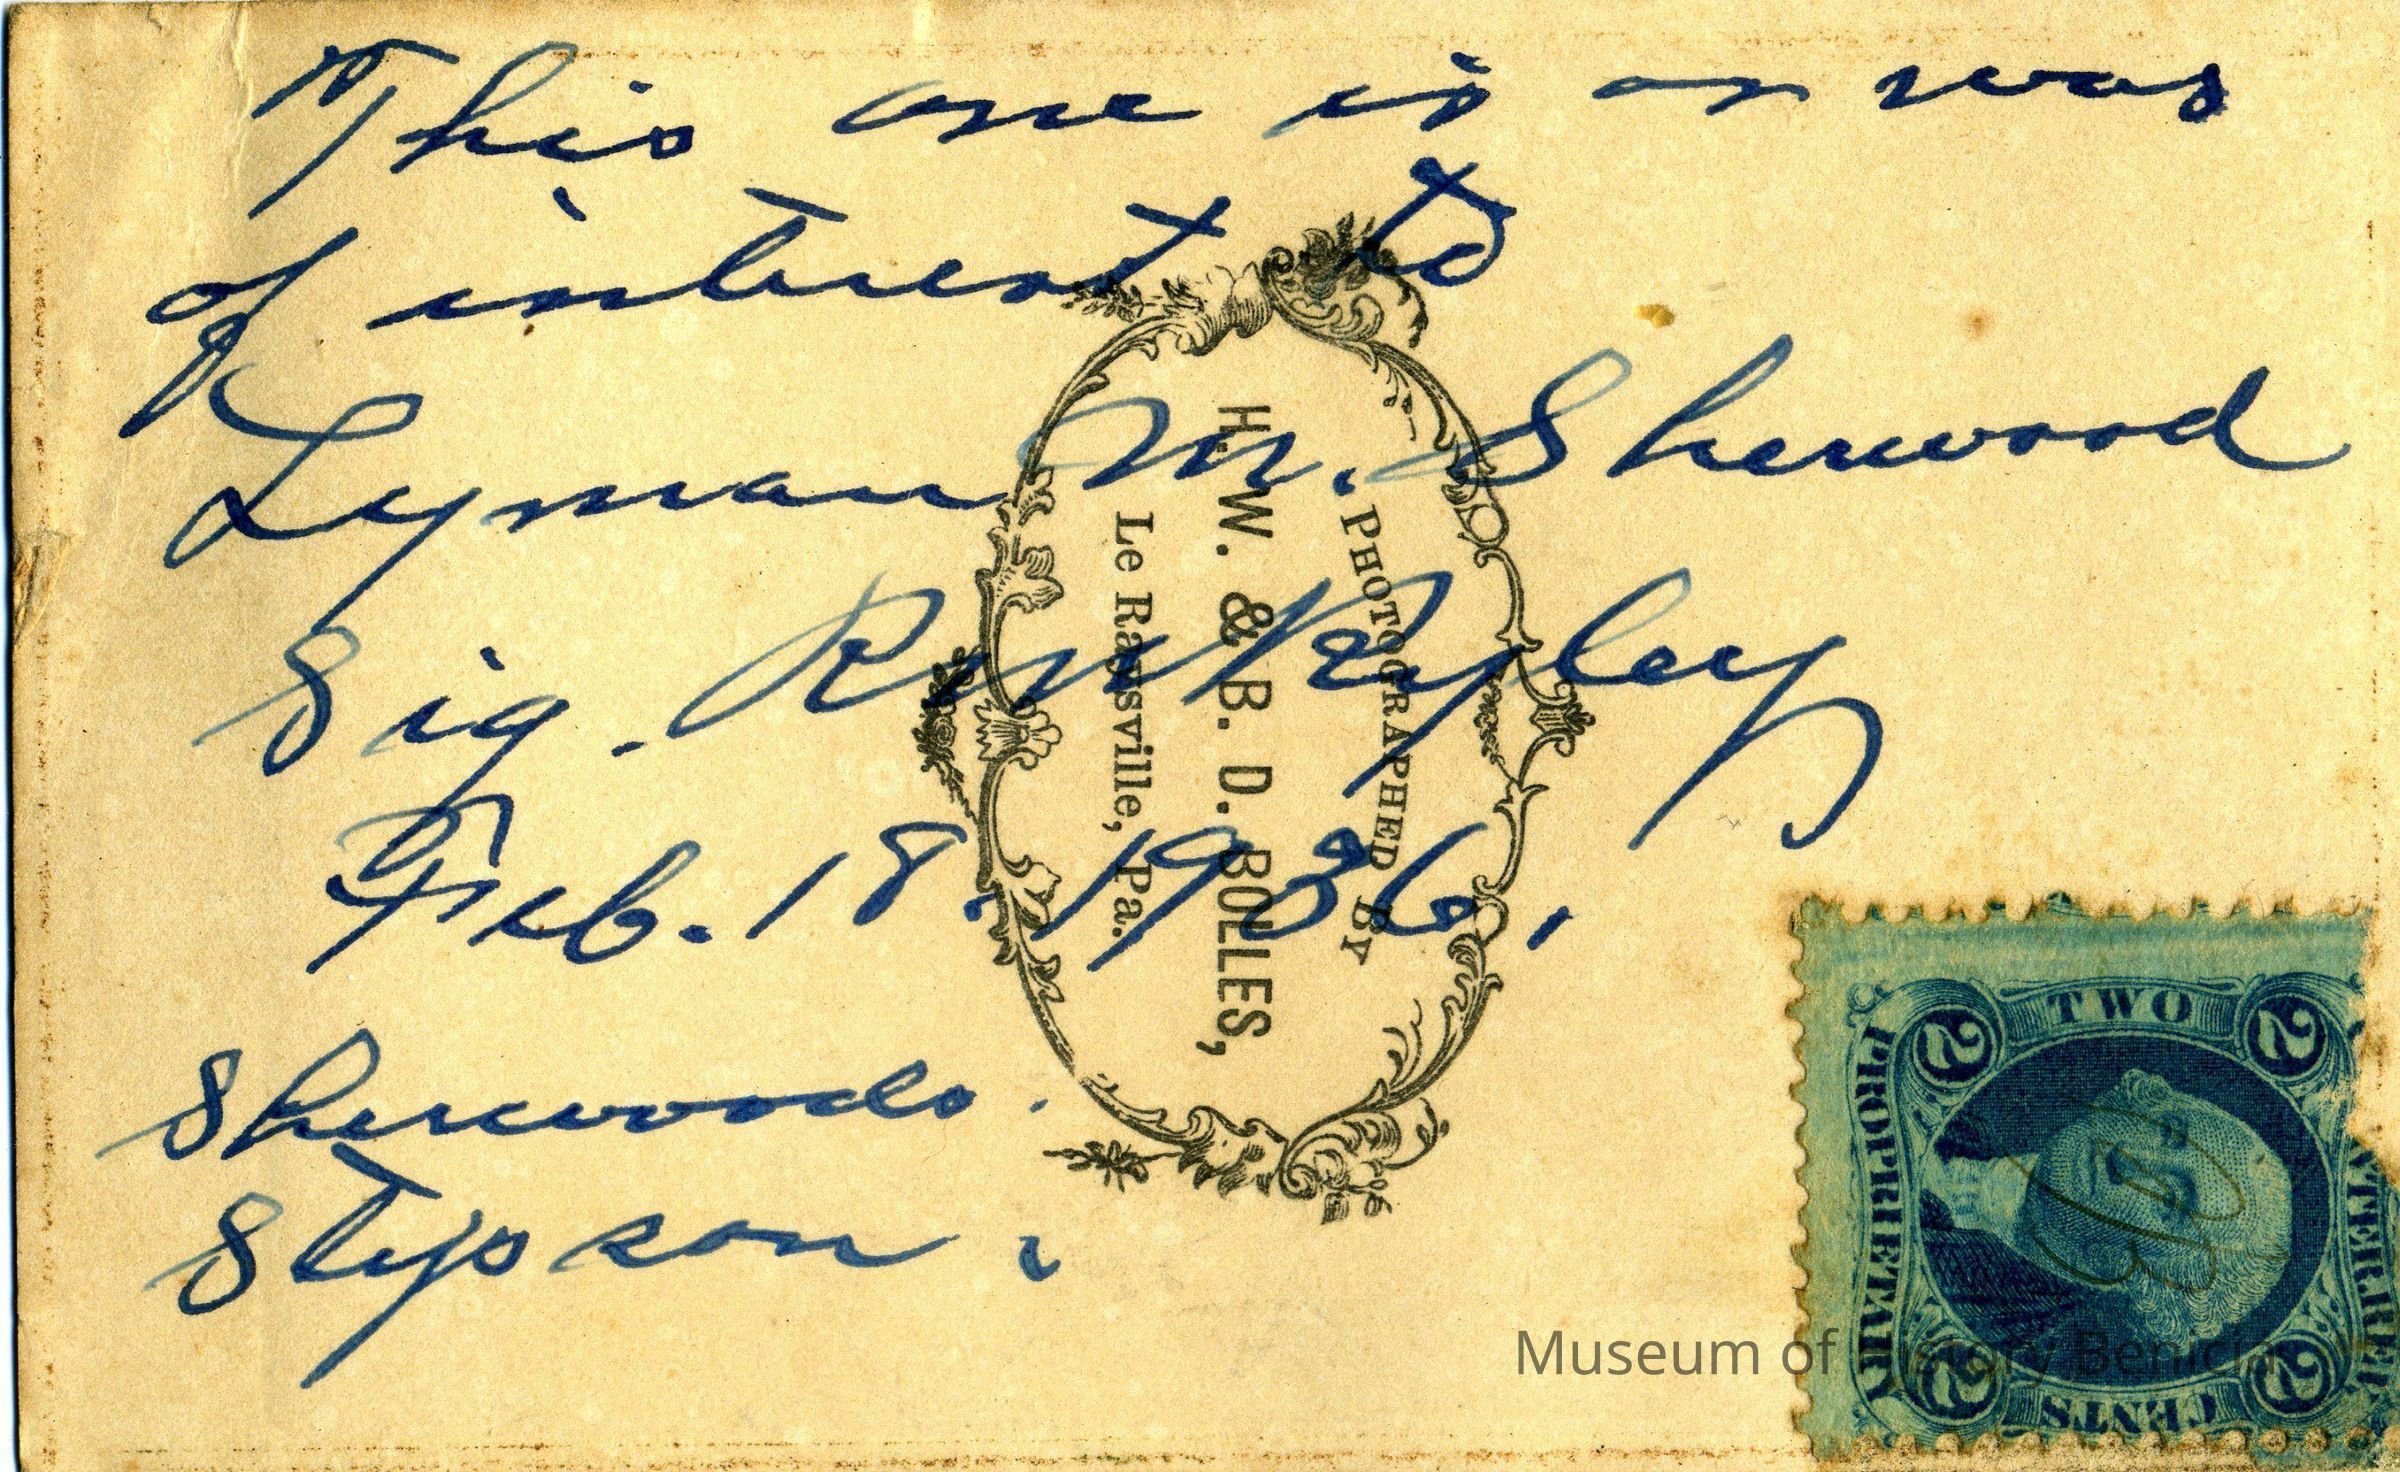 This one is or was
of interest to
Lyman M. Sherwood
Sig. Ripley
Feb. 18. 1936.
Sherwoods.
Stepson.
PHOTOGRAPHED BY
H. W. & B. D. BOLLES,
Le Raysville, Pa.
TWO
2 2
PROPRIETARY
CENTS
2 2
Museum of History Benicia